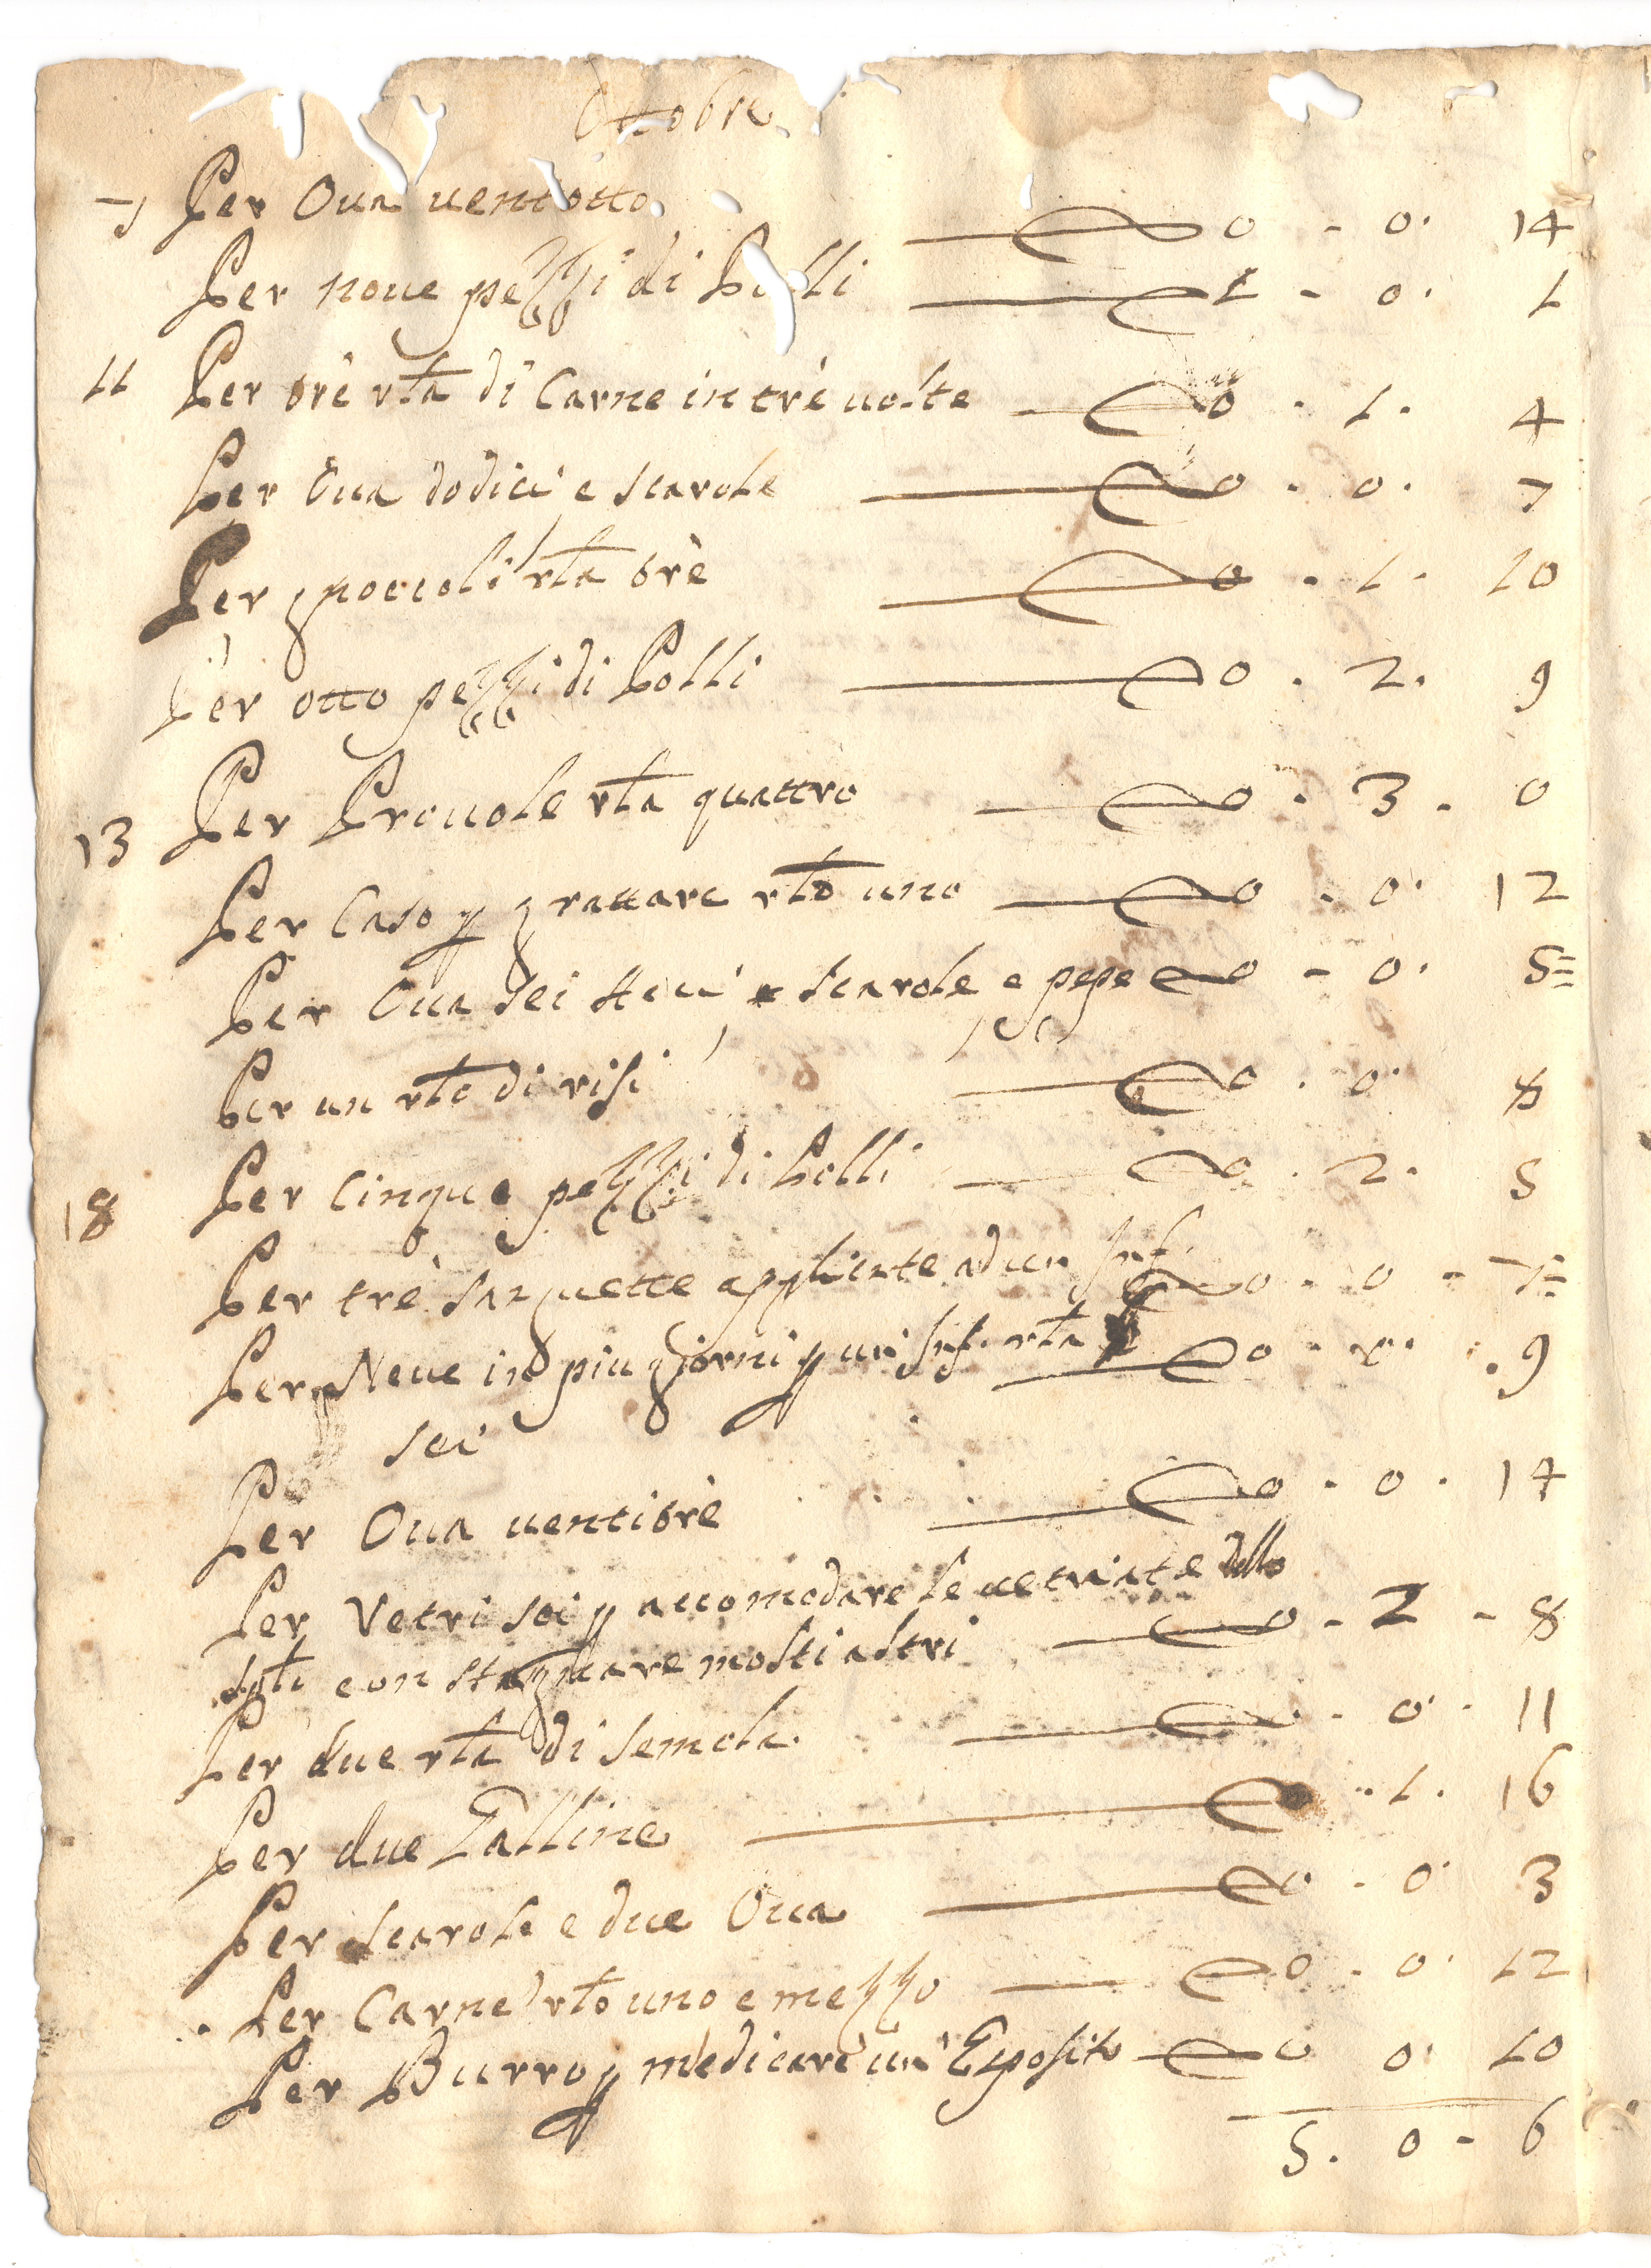 Ottobre
7 Per Oua uentiotto 0 - 0. 14
Per noue pezzi di Polli 1 - 0. 1
11 Per trè rta di Carne in trè uolte 0 . 1. 4
Per Oua dodici e scarole 0 . 0. 7
Per gnoccoli rta trè 0 . 1. 10
Per otto pezzi di Polli 0 . 2. 9
13 Per Prouole rta quattro 0 . 3 . 0
Per Caso p grattare rto uno 0 . 0. 12
Per Oua sei scarole e pepe 0 - 0. 5=
Per un rto di risi 0 . 0. 8
18 Per Cinque pezzi di Polli 0 . 2. 5
Per trè sanguette applicate ad un Inf. 0 - 0 - 7=
Per Neue in piu giorni p un Inf. rta 0 - . 9
sei
Per Oua uentitrè 0 . 0 . 14
Per Vetri sei p accomodare le uetriate dello
con stagnare molti altri 0 - 2 - 8
Per due rta di semola 0 . 0 . 11
Per due Galline . 1. 16
Per scarole e due Oua 0 . 0. 3
Per Carne rto uno e mezzo 0 . 0. 12
Per Burro p medicare un Esposito 0 0. 10
5. 0 - 6